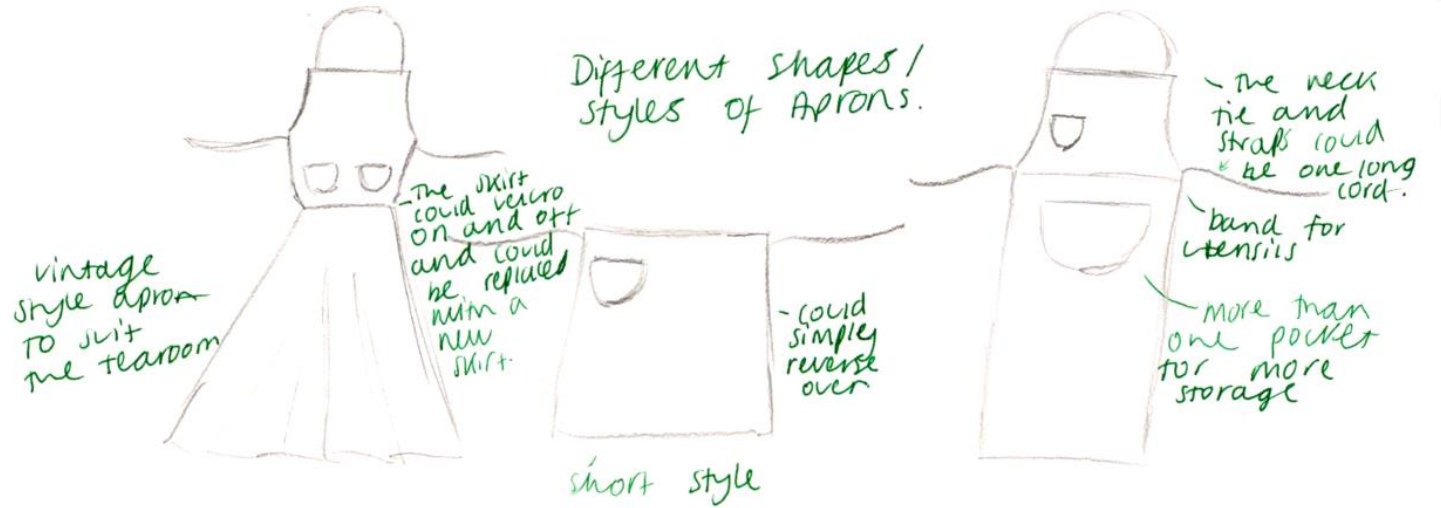 Different shapes /
styles of Aprons.
vintage
style apron
TO suit
the tearoom
- The skirt
could velcro
on and off
and could
be replaced
with a
new
skirt.
- could
simply
reverse
over
short style
- the neck
tie and
straps could
be one long
cord.
band for
utensils
- more than
one pocket
for more
storage